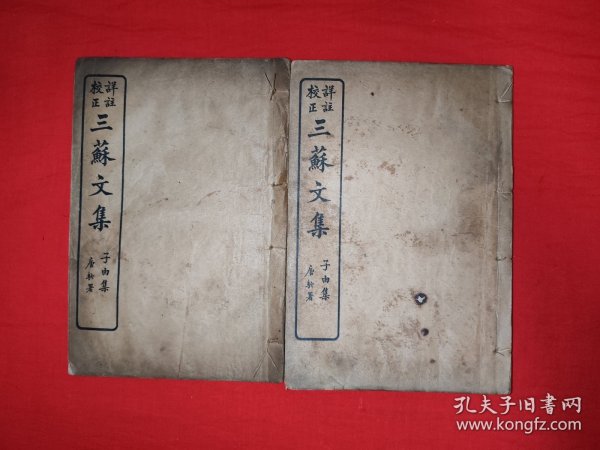 詳註
校正
三蘇文集
子由集
唐駝署
詳註
校正
三蘇文集
子由集
唐駝署
孔夫子旧書网
www.kongfz.com